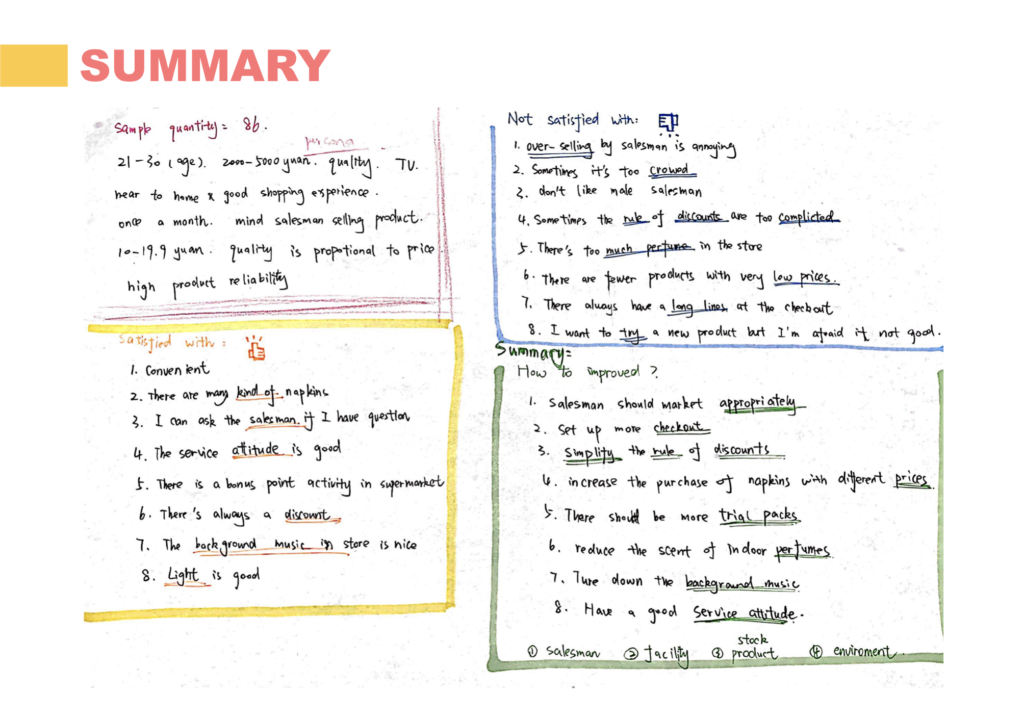 SUMMARY
Sample quantity: 86.
persona
21-30 (age). 2000-5000 yuan. quality. TV.
near to home & good shopping experience.
once a month. mind salesman selling product.
10-19.9 yuan. quality is propotional to price.
high product reliability
Satisfied with:
1. Convenient
2. There are many kind of napkins
3. I can ask the salesman if I have question
4. The service attitude is good
5. There is a bonus point activity in supermarket
6. There's always a discount
7. The background music in store is nice
8. Light is good
Not satisfied with:
1. over-selling by salesman is annoying
2. Sometimes it's too crowed
3. don't like male salesman
4. Sometimes the rule of discounts are too complicted
5. There's too much perfume in the store
6. There are fewer products with very low prices.
7. There always have a long lines at the checkout
8. I want to try a new product but I'm afraid it not good.
Summary:
How to improved?
1. Salesman should market appropriately
2. Set up more checkout
3. Simplify the rule of discounts
4. increase the purchase of napkins with different prices.
5. There should be more trial packs
6. reduce the scent of indoor perfumes
7. Ture down the background music
8. Have a good service attitude.
stock
① salesman ② facility ③ product ④ enviroment.